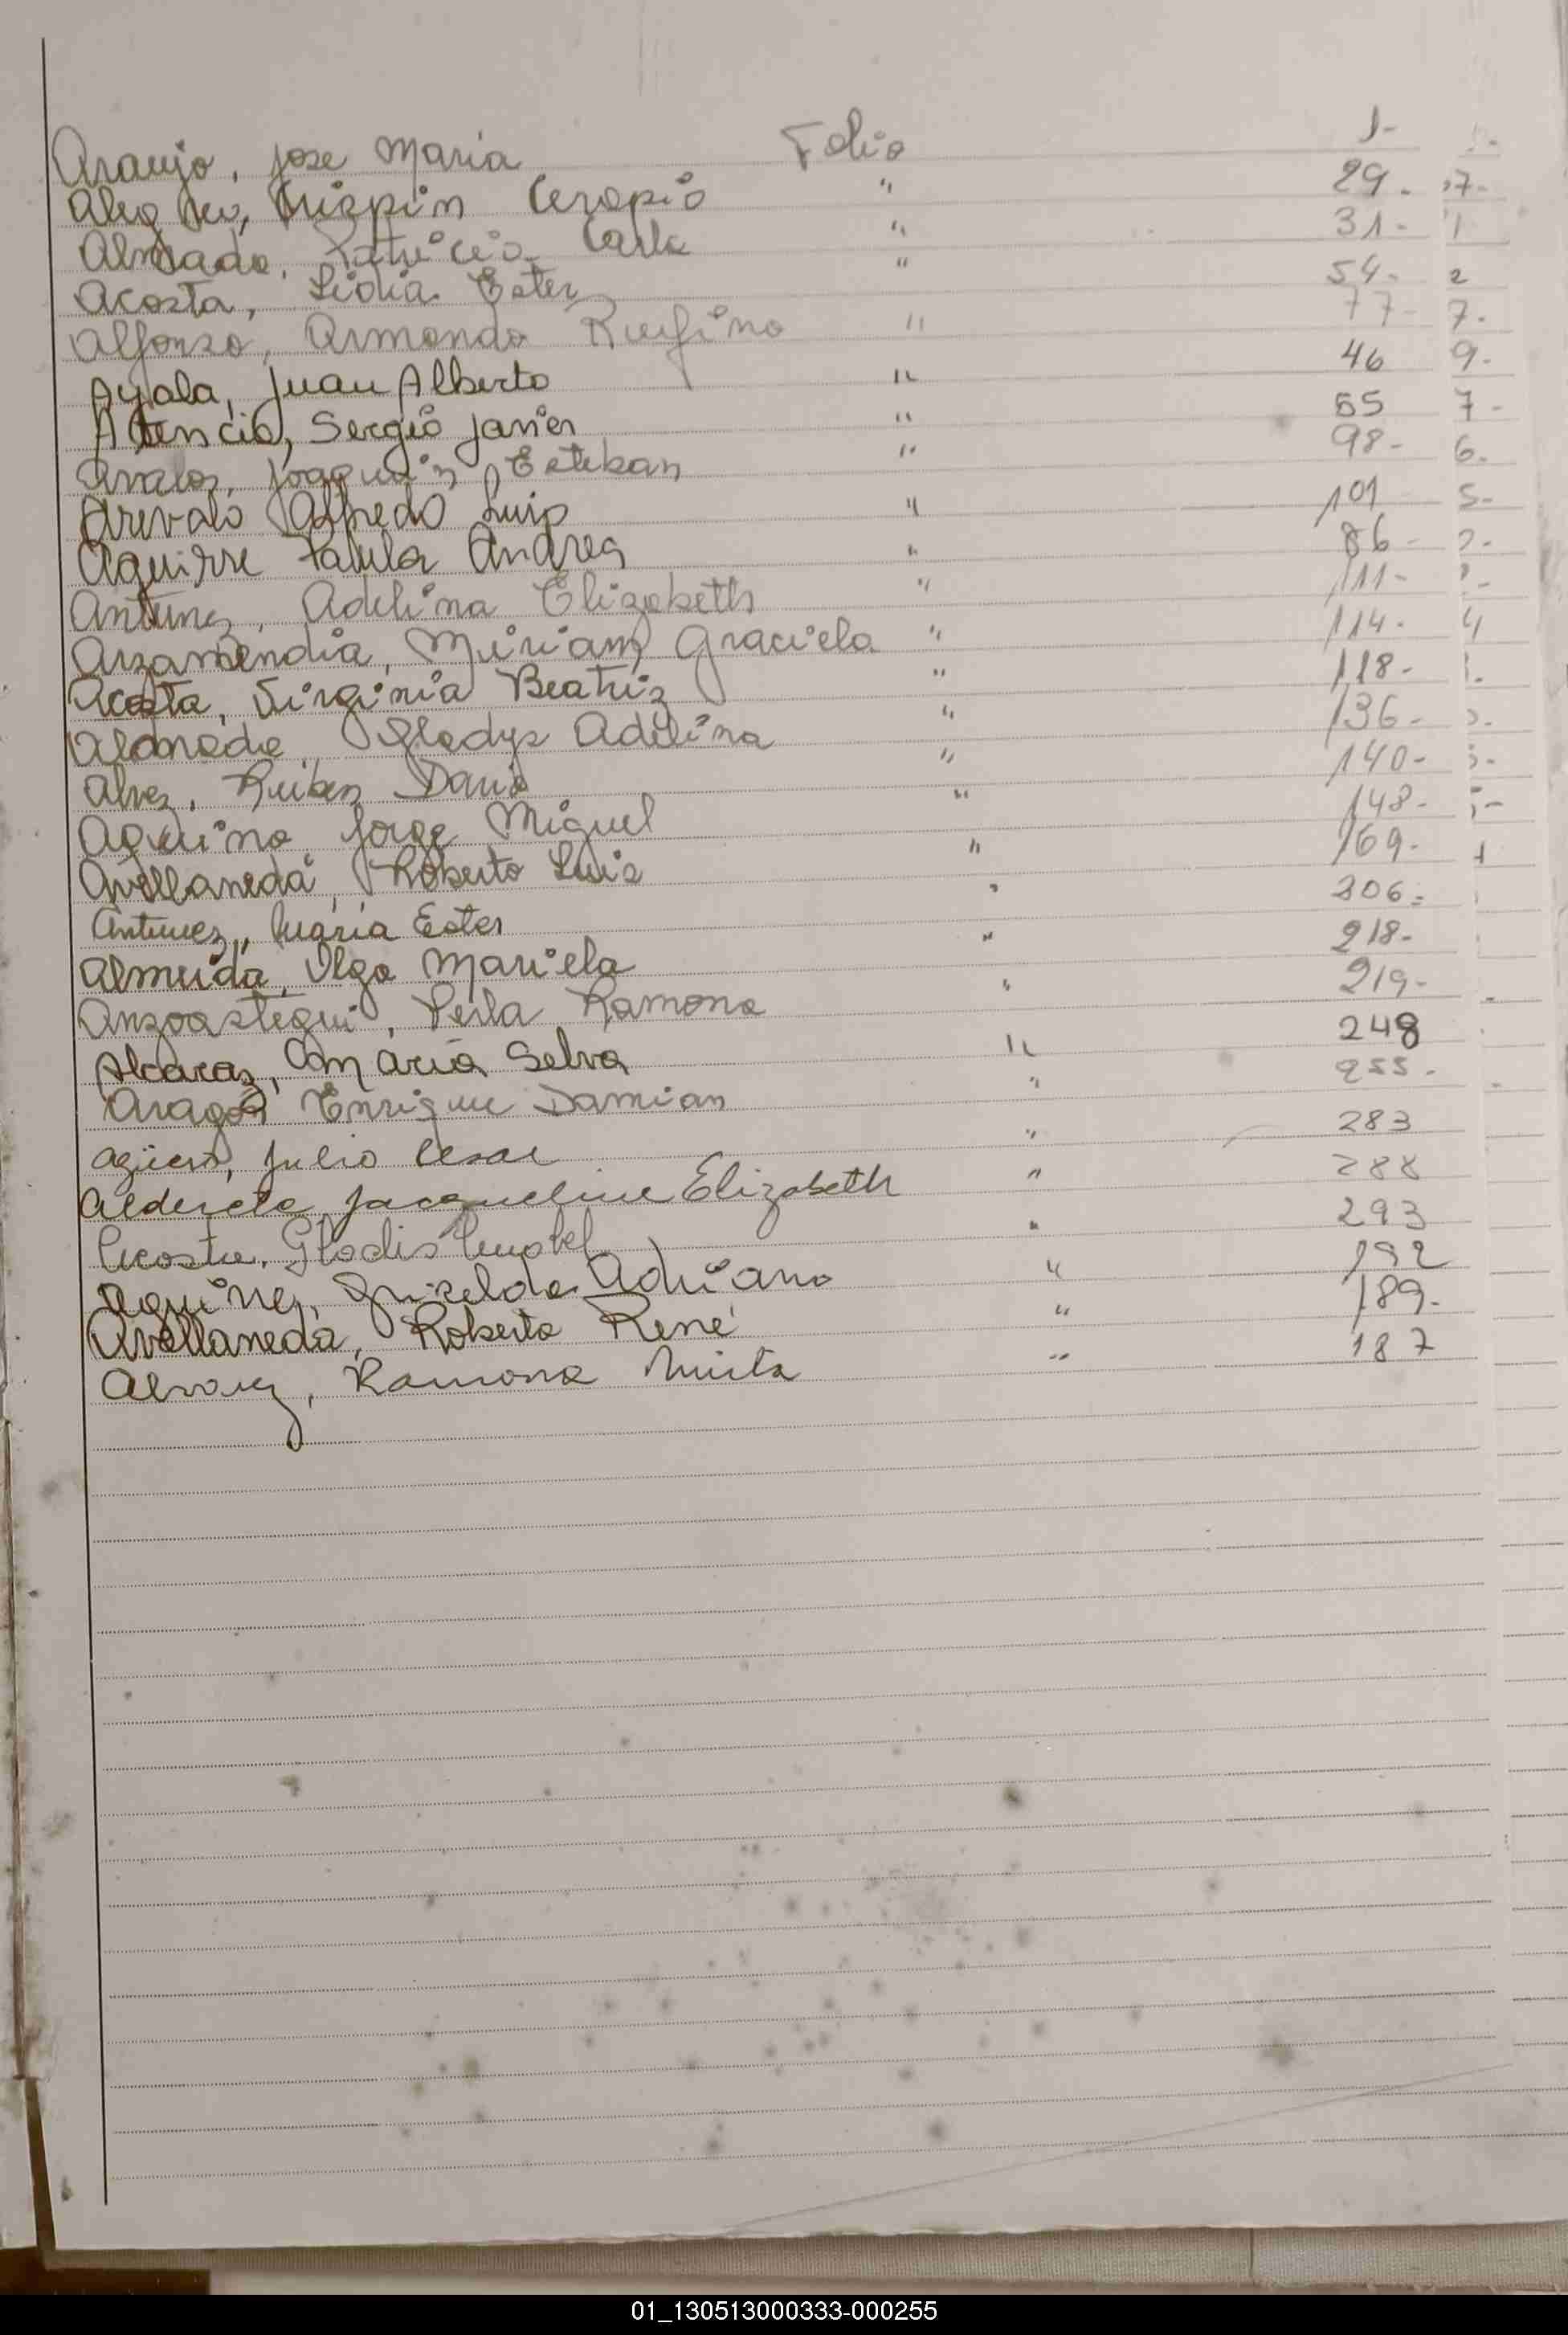 Araujo, Jose Maria Folio 1-
Crispin Cerapio " 29-
Almada, Patricia Carla " 31-
Acosta, Lidia Ester " 54-
Alfonso, Armando Rufino " 77-
Ayala, Juan Alberto " 46
Atencio, Sergio Javier " 55
Avalos, Joaquin Esteban " 98-
Arevalo Alfredo Luis " 101
Aguirre Paula Andrea " 86-
Antunez, Adelina Elizabeth " 111-
Arzamendia, Miriam Graciela " 114-
Acosta, Virginia Beatriz " 118-
Gladys Adelina " 136-
Alvez, Ruben Dario " 140-
Aquino Jorge Miguel " 148-
Avellaneda, Roberto Luis " 169-
Antunez, Maria Ester " 206-
Almeida, Olga Mariela " 218-
Anzoastegui, Perla Ramona " 219-
Alcaraz, Maria Selva " 248
Aragon Enrique Damian " 255-
Agüero, Julio Cesar " 283
Alderete Jacqueline Elizabeth " 288
Acosta, Gladis " 293
Aquinez, Griselda Adriana " 192
Avellaneda, Roberto René " 189-
Alvarez, Ramona Mirta " 187
01_130513000333-000255